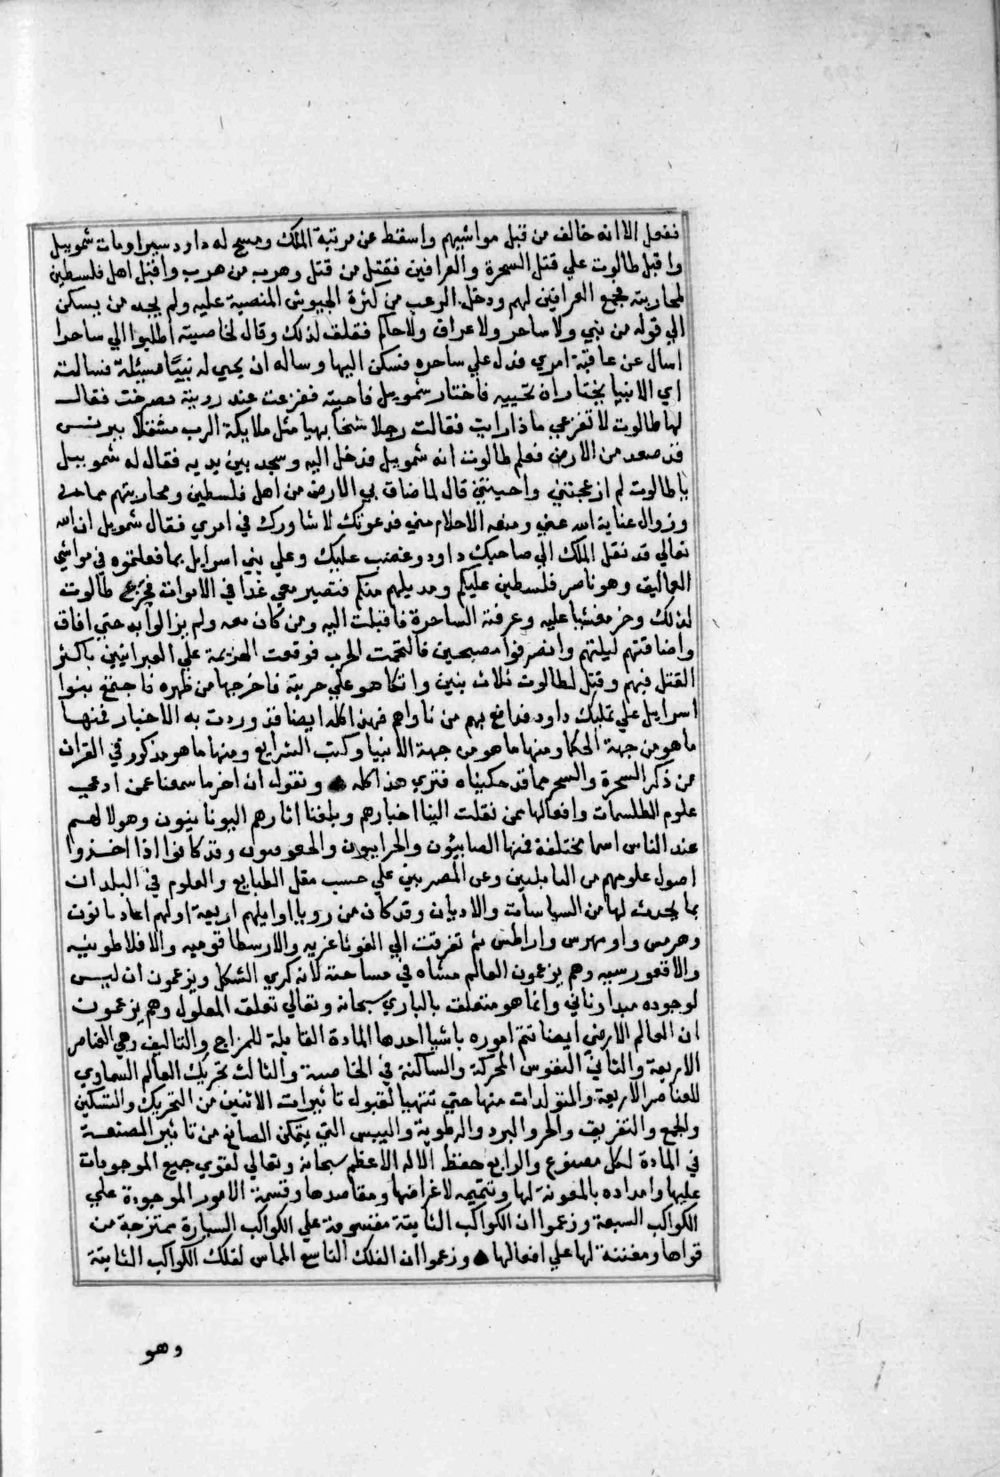 ففعل الا انه خالف من قبل مواشيهم واسقط عن مرتبة الملك ومسح له داود سرا ومات شمويل
واقبل طالوت علي قتل السحرة والعرافين فقتل من قتل وهرب من هرب واقبل اهل فلسطين
لمحاربته فجمع العرافين لهم ودخل الرعب من كثرة الجيوش المنصبة عليه ولم يجد من يسكن
الي قوله من نبي ولا ساحر ولا عراف ولا حاكم فقلق لذلك وقال لخاصيته اطلبوا الي ساحرا
اسال عن عاقبة امري فدل علي ساحره فسكن اليها وساله ان يحيي له نبيا مسئلة فسالت
اي الانبيا يختار ان تحييه فاختار شمويل فاحيته ففزعت عند روية فصرخت فقال
لها طالوت لا تفزعي ماذا رايت فقالت رجلا شخا بهيا مثل ملايكة الرب مشتملا ببرنس
قد صعد من الارض فعلم طالوت انه شمويل فدخل اليه وسجد بين يديه فقال له شمويل
يا طالوت لم ازعجتني واحييتني قال لما ضاقت بي الارض من اهل فلسطين ومحاربتهم معي
وزوال عناية الله عني ومنعه الاحلام مني فدعوتك لاشاورك في امري فقال شمويل ان الله
تعالي قد نقل الملك الي صاحبك داود وغضب عليك وعلي بني اسرايل بما فعلتموه في مواشي
العماليق وهو ناصر فلسطين عليكم ومديلهم منكم فتصير معي غدا في الاموات فجزع طالوت
لذلك وخر مغشيا عليه وعرفته الساحرة فاقبلت اليه ومن كان معه ولم يزالوا به حتي افاق
واضافتهم ليلتهم وانصرفوا مصبحين فالتحمت الحرب فوقعت الهزيمة علي العبرانيين باكثر
القتل فيهم وقتل لطالوت ثلاث بنين واتكا هو علي حربته فاخرجها من ظهره فاجتمع بنوا
اسرايل علي تمليك داود فدافع بهم من ناواهم فهذا كله ايضا قد وردت به الاخبار فمنها
ما هو من جهة الحكما ومنها ما هو من جهة الانبيا وكتب الشرايع ومنها ما هو مذكور في القران
من ذكر السحرة والسحر مما قد حكيناه فتري هذا كله ونقول ان اخر ما سمعنا عمن ادعي
علوم الطلسمات وافعالها ممن نقلت الينا اخبارهم وبلغنا اثارهم اليونانيون وهولا لهم
عند الناس اسما مختلفة فمنها الصابيئون والحرانيون وقد كانوا اذا اخذوا
اصول علومهم من السريانيين وعن المصريين علي حسب مقل الطبايع والعلوم في البلدان
بما يحدث لها من السياسات والاديان وقد كان من روسا اوايلهم اربعة اولهم اعاديانون
وهرمس واومهرس واراطس ثم تفرقت الي الفوثاغريه والارسطاقوميه والافلاطونيه
والافعورسيه وهم يزعمون العالم متناه في مساحته لانه كري الشكل ويزعمون ان ليس
لوجوده مبدا وثاني وانما هو متعلق بالباري سبحانه وتعالي تعلق المعلول وهم يزعمون
ان العالم الارضي ايضا تتم اموره باشيا احدها المادة القابلة للمزاج والتاليف وهي العناصر
الاربعة والثاني النفوس المحركة والساكنة في الخاصة والثالث تحريك العالم السماوي
للعناصر الاربعة والمتولدات منها حتي تتهيا لقبول تاثيرات الاثنين من التحريك والتسكين
والجمع والتفريق والحر والبرد والرطوبة واليبس التي يتمكن الصانع من تاثير الصنعة
في المادة لكل مصنوع والرابع حفظ الاله الاعظم سبحانه وتعالي لقوي جميع الموجودات
عليها وامداده بالمعونة لها وتتميمه لاغراضها ومقاصدها وقسمة الامور الموجودة علي
الكواكب السبعة وزعموا ان الكواكب الثابتة مقسومة علي الكواكب السيارة ممتزجة من
قواها ومفننة لها علي افعالها وزعموا ان الفلك التاسع المماس لفلك الكواكب الثابتة
وهو